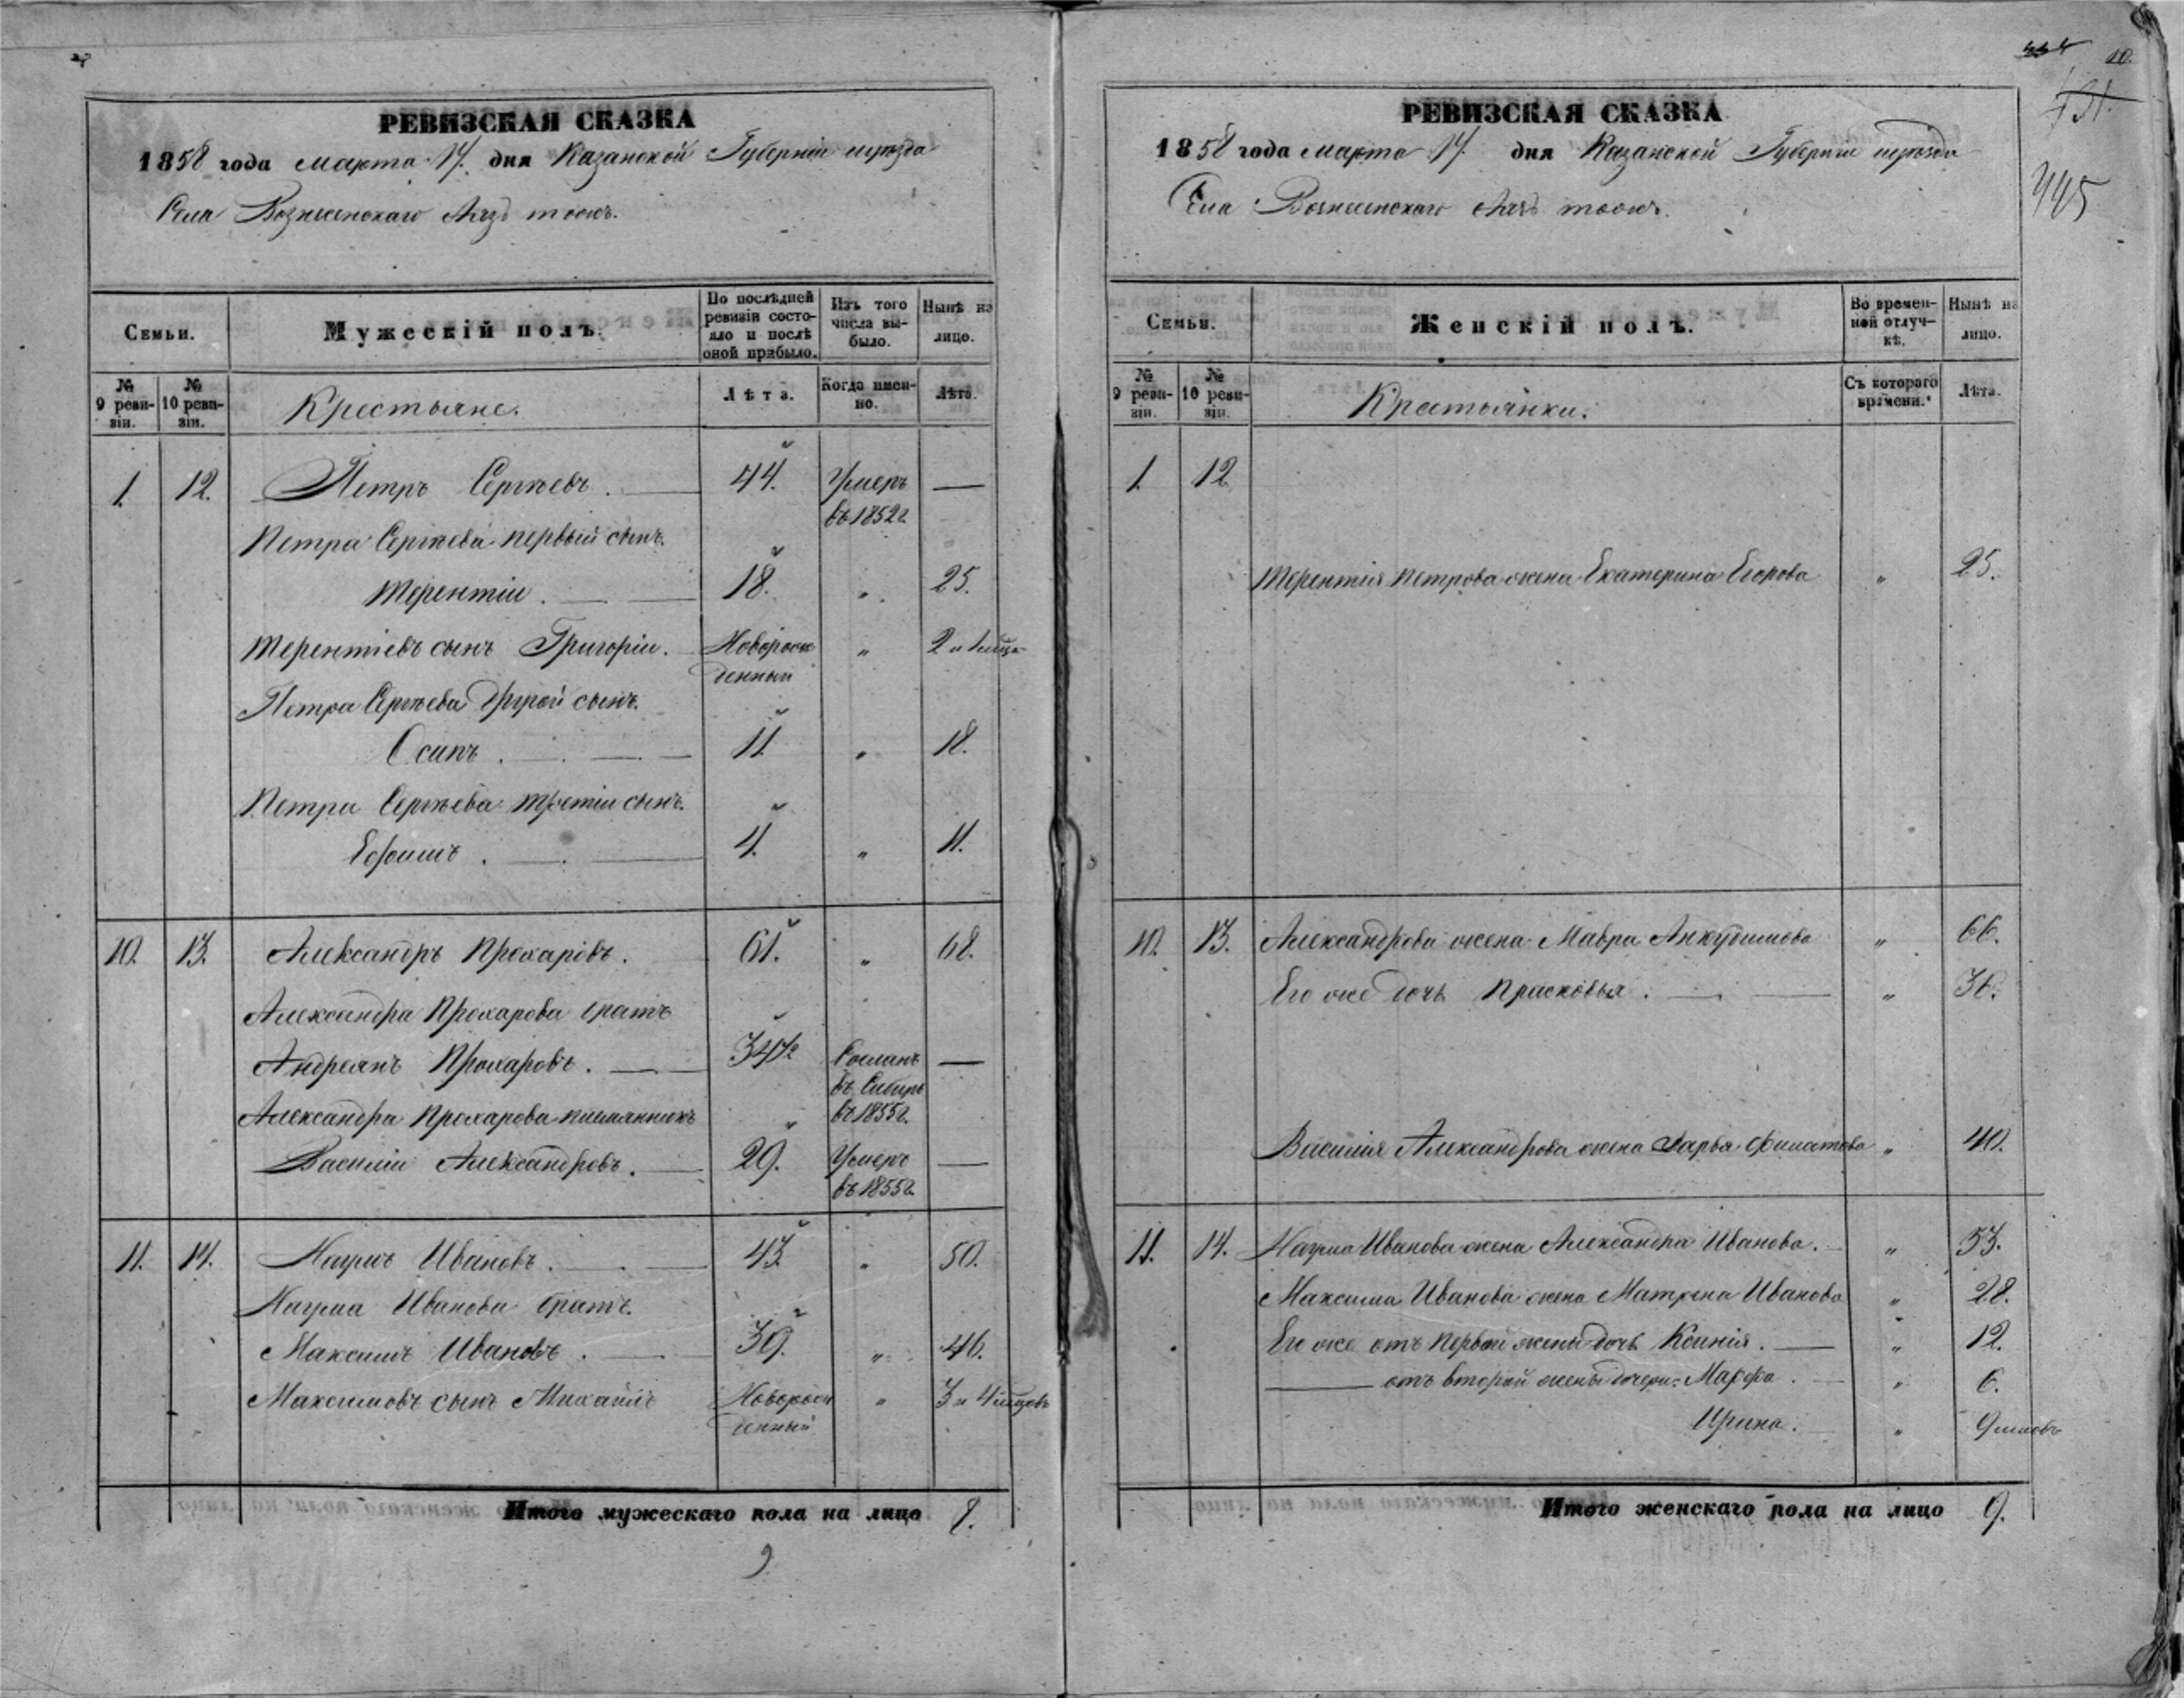 РЕВИЗСКАЯ СКАЗКА
1858 года марта 17. дня Казанской Губерніи уѣзда
Села Вознесенскаго тожъ.
Семьи.
Мужескій полъ.
По послѣдней ревизіи состояло и послѣ оной прибыло.
Изъ того числа выбыло.
Нынѣ на лицо.
№ 9 ревизіи.
№ 10 ревизіи.
Крестьяне.
Лѣта.
Когда именно.
Лѣта.
1. 12. Петръ Сергѣевъ. 44. Умеръ —
въ 1852 г.
Петра Сергѣева первый сынъ.
Терентіи. 18. „ 25.
Терентіевъ сынъ Григоріи. Неворож „ 2 и
денный
Петра Сергѣева другой сынъ.
Осипъ. 11. „ 18.
Петра Сергѣева третіи сынъ.
Ефимъ. 4. „ 11.
10. 13. Александръ Прохаровъ. 61. „ 68.
Александра Прохарова братъ
Андреянъ Прохаровъ. 34½ Сосланъ —
въ Сибирь
Александра Прохарова племянникъ въ 1855 г.
Василіи Александровъ. 29. Умеръ —
въ 1855 г.
11. 14. Наумъ Ивановъ. 43. „ 50.
Наума Иванова братъ.
Максимъ Ивановъ. 39. „ 46.
Максимовъ сынъ Михаилъ Новорож „ 3 и 4 мѣцовъ
денный
Итого мужескаго пола на лицо 8.
9.
10.
131.
445
РЕВИЗСКАЯ СКАЗКА
1858 года марта 17. дня Казанской Губерніи уѣзда
Села Вознесенскаго тожъ.
Семьи.
Женскій полъ.
Во временной отлучкѣ.
Нынѣ на лицо.
№ 9 ревизіи.
№ 10 ревизіи.
Крестьянки.
Съ котораго времени.
Лѣта.
1. 12
Терентія Петрова жена Екатерина Егорова „ 25.
10. 13. Александрова жена Мавра Анкудинова „ 66.
Его же дочь Прасковья. „ 36.
Василія Александрова жена Дарья Филатова „ 40.
11. 14. Наума Иванова жена Александра Иванова. „ 53.
Максима Иванова жена Матрена Иванова „ 28.
Его же отъ первой жены дочь Ксинія. „ 12.
— отъ второй жены дочери: Марфа. „ 6.
Ирина. „ 9 мѣцовъ
Итого женскаго пола на лицо 9.